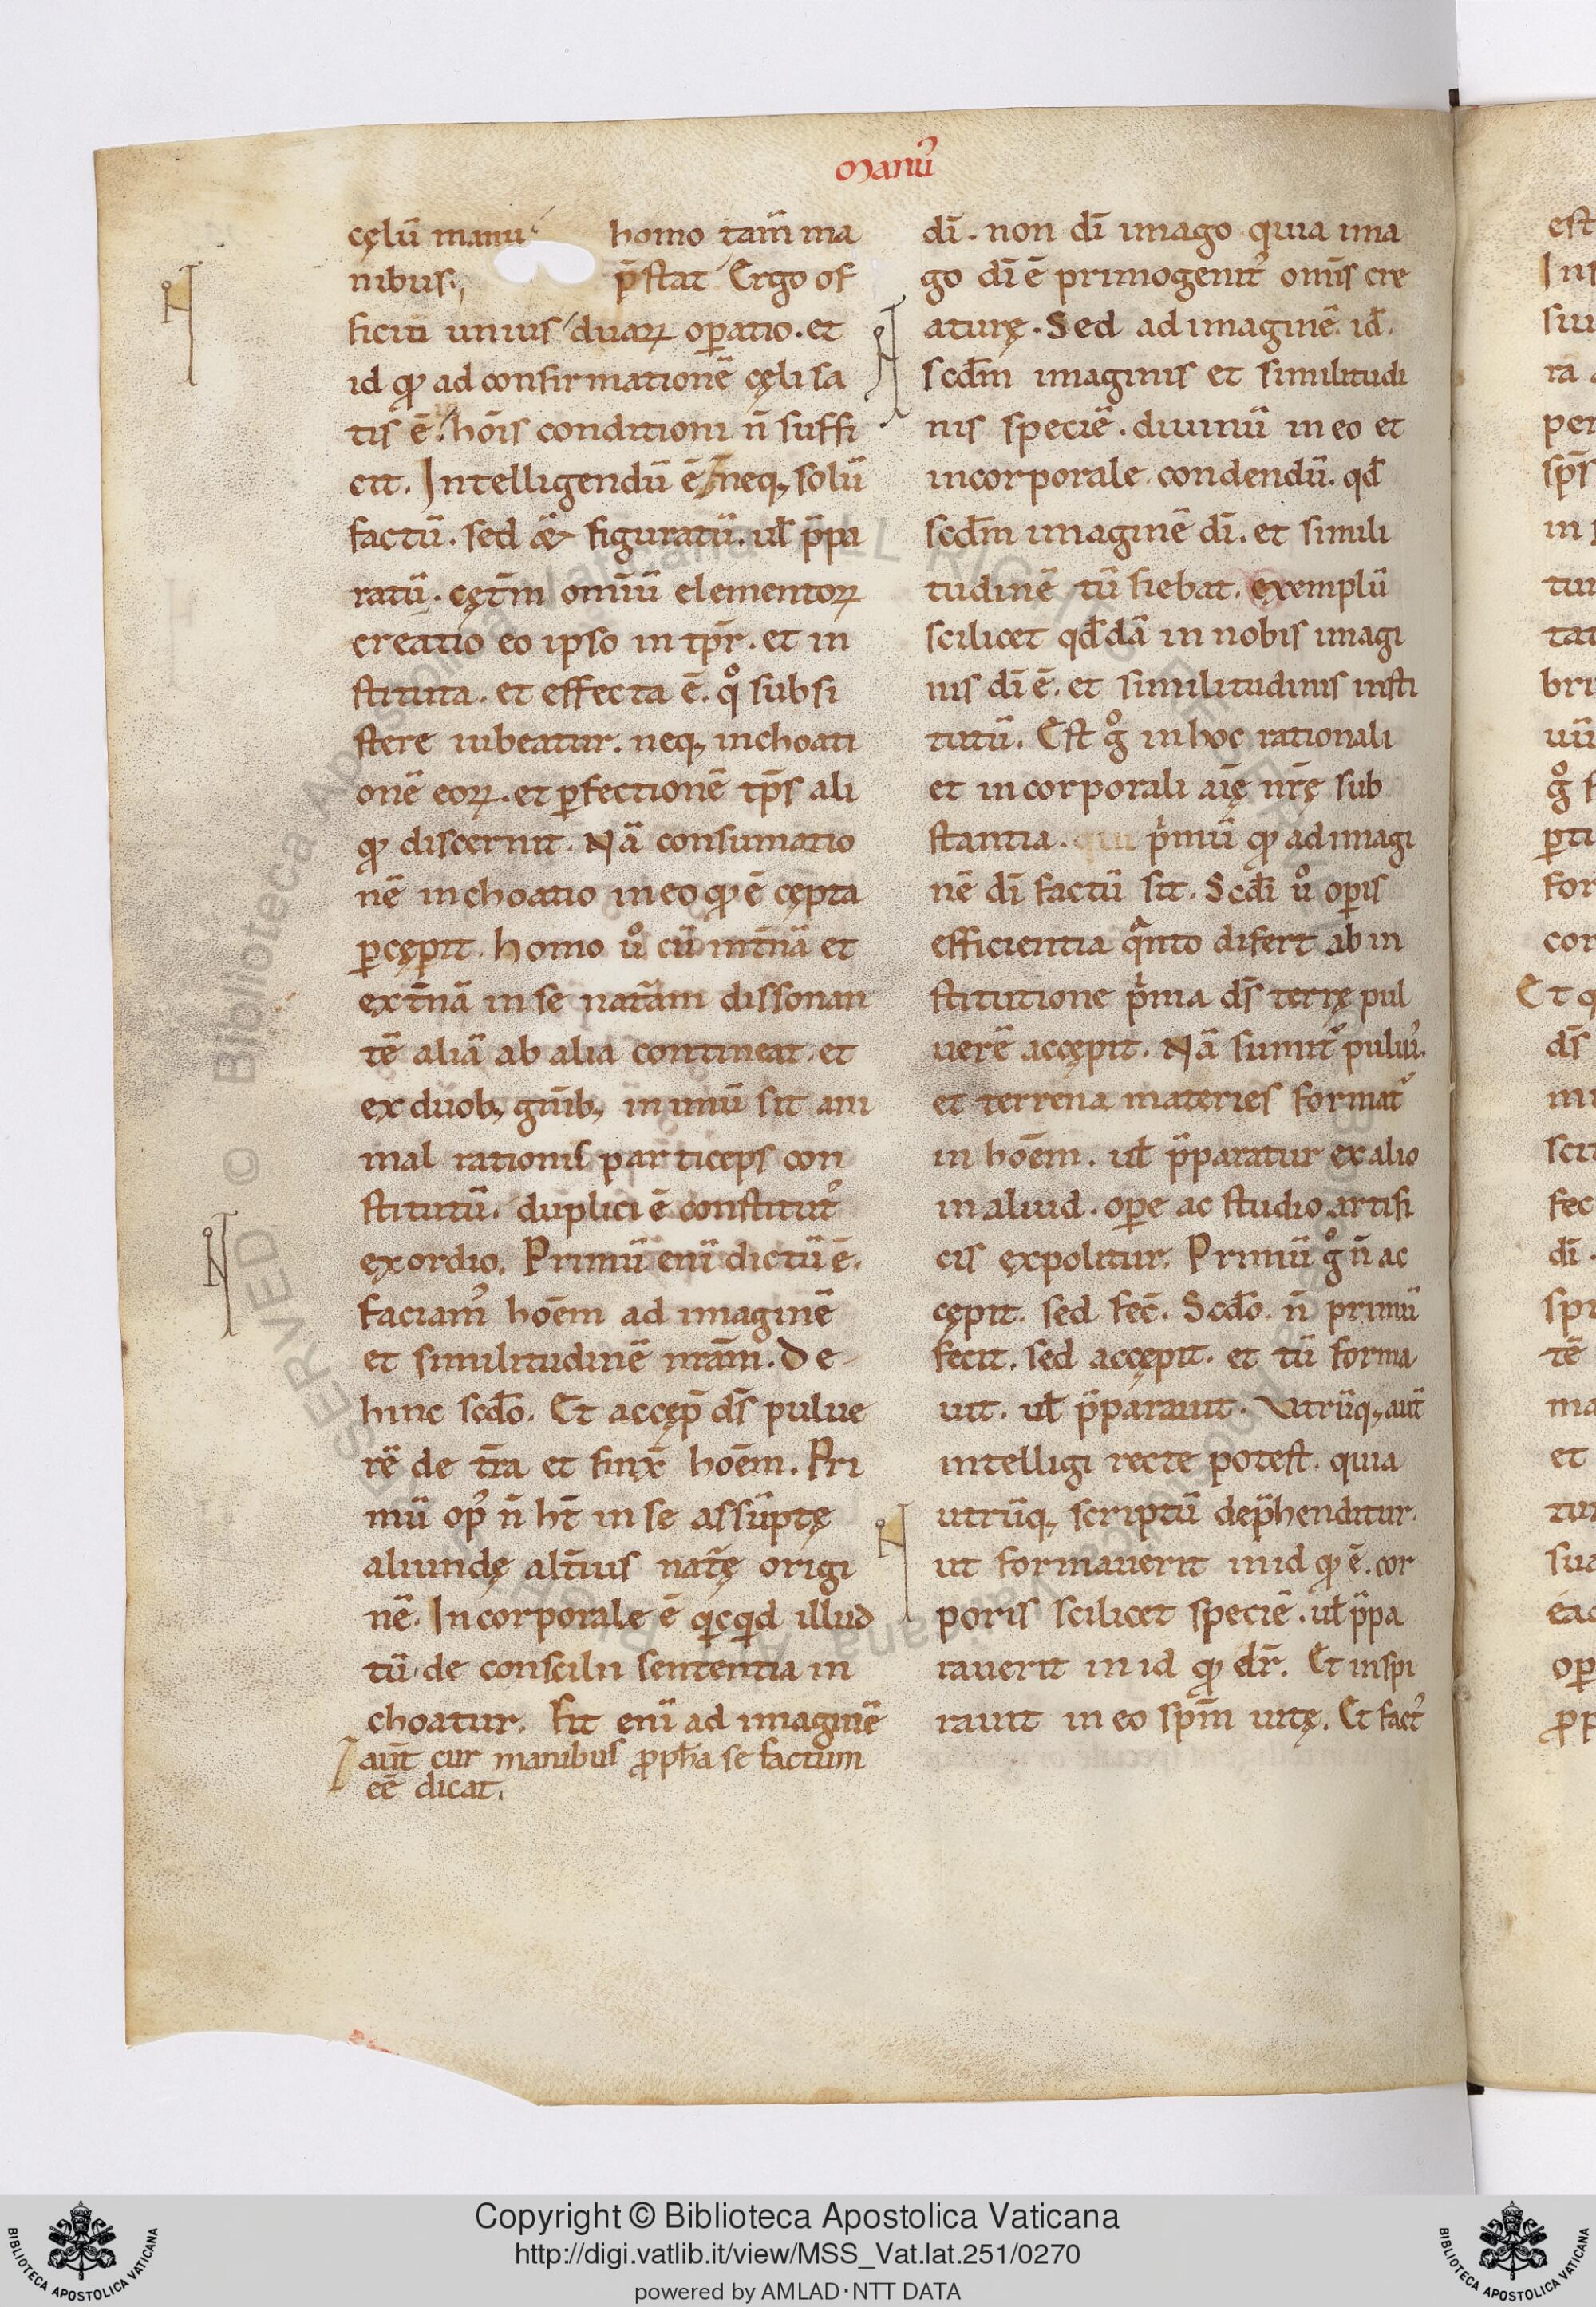 Manuˀ
cęlū manuˀ homo tam̄ ma
nibus. p̄stat Ergo of
ficiū unius duaꝝ oꝑatio. et
id qđ ad confirmationē cęli sa
tis ē. hōis conditioni n̄ suffi
cit. Intelligendū ē neq; solū
factū. sed & figuratū. ul̄ p̄pa
ratū. cęt̄m om̄iū elementoꝝ
creatio eo ipso in tp̄r. et in
stituta. et effecta ē. qͦ subsi
stere iubeatur. neq; inchoati
onē eoꝝ. et ꝑfectionē tp̄s ali
qđ discernit. Nā consumatio
nē inchoatio in eo qđ ē cępta
ꝑcępit. homo uͦ cū int̄nā et
ext̄nā in se nat̄am dissonan
tē aliā ab alia contineat. et
ex duob; gn̄ib; in unū sit ani
mal rationis particeps con
stitutū. duplici ē constitutˀ
exordio. Primū enī dictū ē.
faciamˀ hoēm ad imaginē
et similitudinē nrām. De
hinc scdo̅. Et accęp̄ ds̄ pulue
rē de tr̄a et finx̄ hoēm. Pri
mū opˀ n̄ ht̄ in se assūptę
aliundę alt̄ius nat̄ę origi
nē. Incorporale ē qͥcqͥd illud
tū de consciliı sententia in
choatur. Fit enī ad imaginē
aut̄ cur manibus ꝓph̄a se factum
eē dicat.
dī. non dī imago quia ima
go dī ē primogenitˀ om̄is cre
aturę. Sed ad imaginē. id.
scdm̄ imaginis et similitudi
nis speciē. diuinū in eo et
incorporale condendū. qd̄
scdm̄ imaginē dī. et simili
tudinē tū fiebat. exemplū
scilicet qd̄dā in nobis imagi
nis dī ē. et similitudinis insti
tutū. Est gͦ in hoc rationali
et incorporali aīę nr̄ę sub
stantia. pͥmū qđ ad imagi
nē dī factū sit. Scdī uͦ oꝑis
efficientia qͣnto difert ab in
stitutione pͥma ds̄ terrę pul
uerē accępit. Nā sumit̄ puluiˀ.
et terrena materies formatˀ
in hoēm. ul̄ p̄paratur ex alio
in aliud. oꝑe ac studio artifi
cis expolitur. Primū gͦ n̄ ac
cępit. sed fec̄. Scdo̅. n̄ primū
fecit. sed accępit. et tū forma
uit. ul̄ p̄parauit. Vtrūq; aut̄
intelligi recte potest. quia
utrūq; scriptū dep̄henditur.
ut formauerit in id qđ ē. cor
poris scilicet speciē. ul̄ p̄pa
rauerit in id qđ dr̄. Et inspi
rauit in eo spm̄ uitę. Et factˀ
Copyright © Biblioteca Apostolica Vaticana
http://digi.vatlib.it/view/MSS_Vat.lat.251/0270
powered by AMLAD·NTT DATA